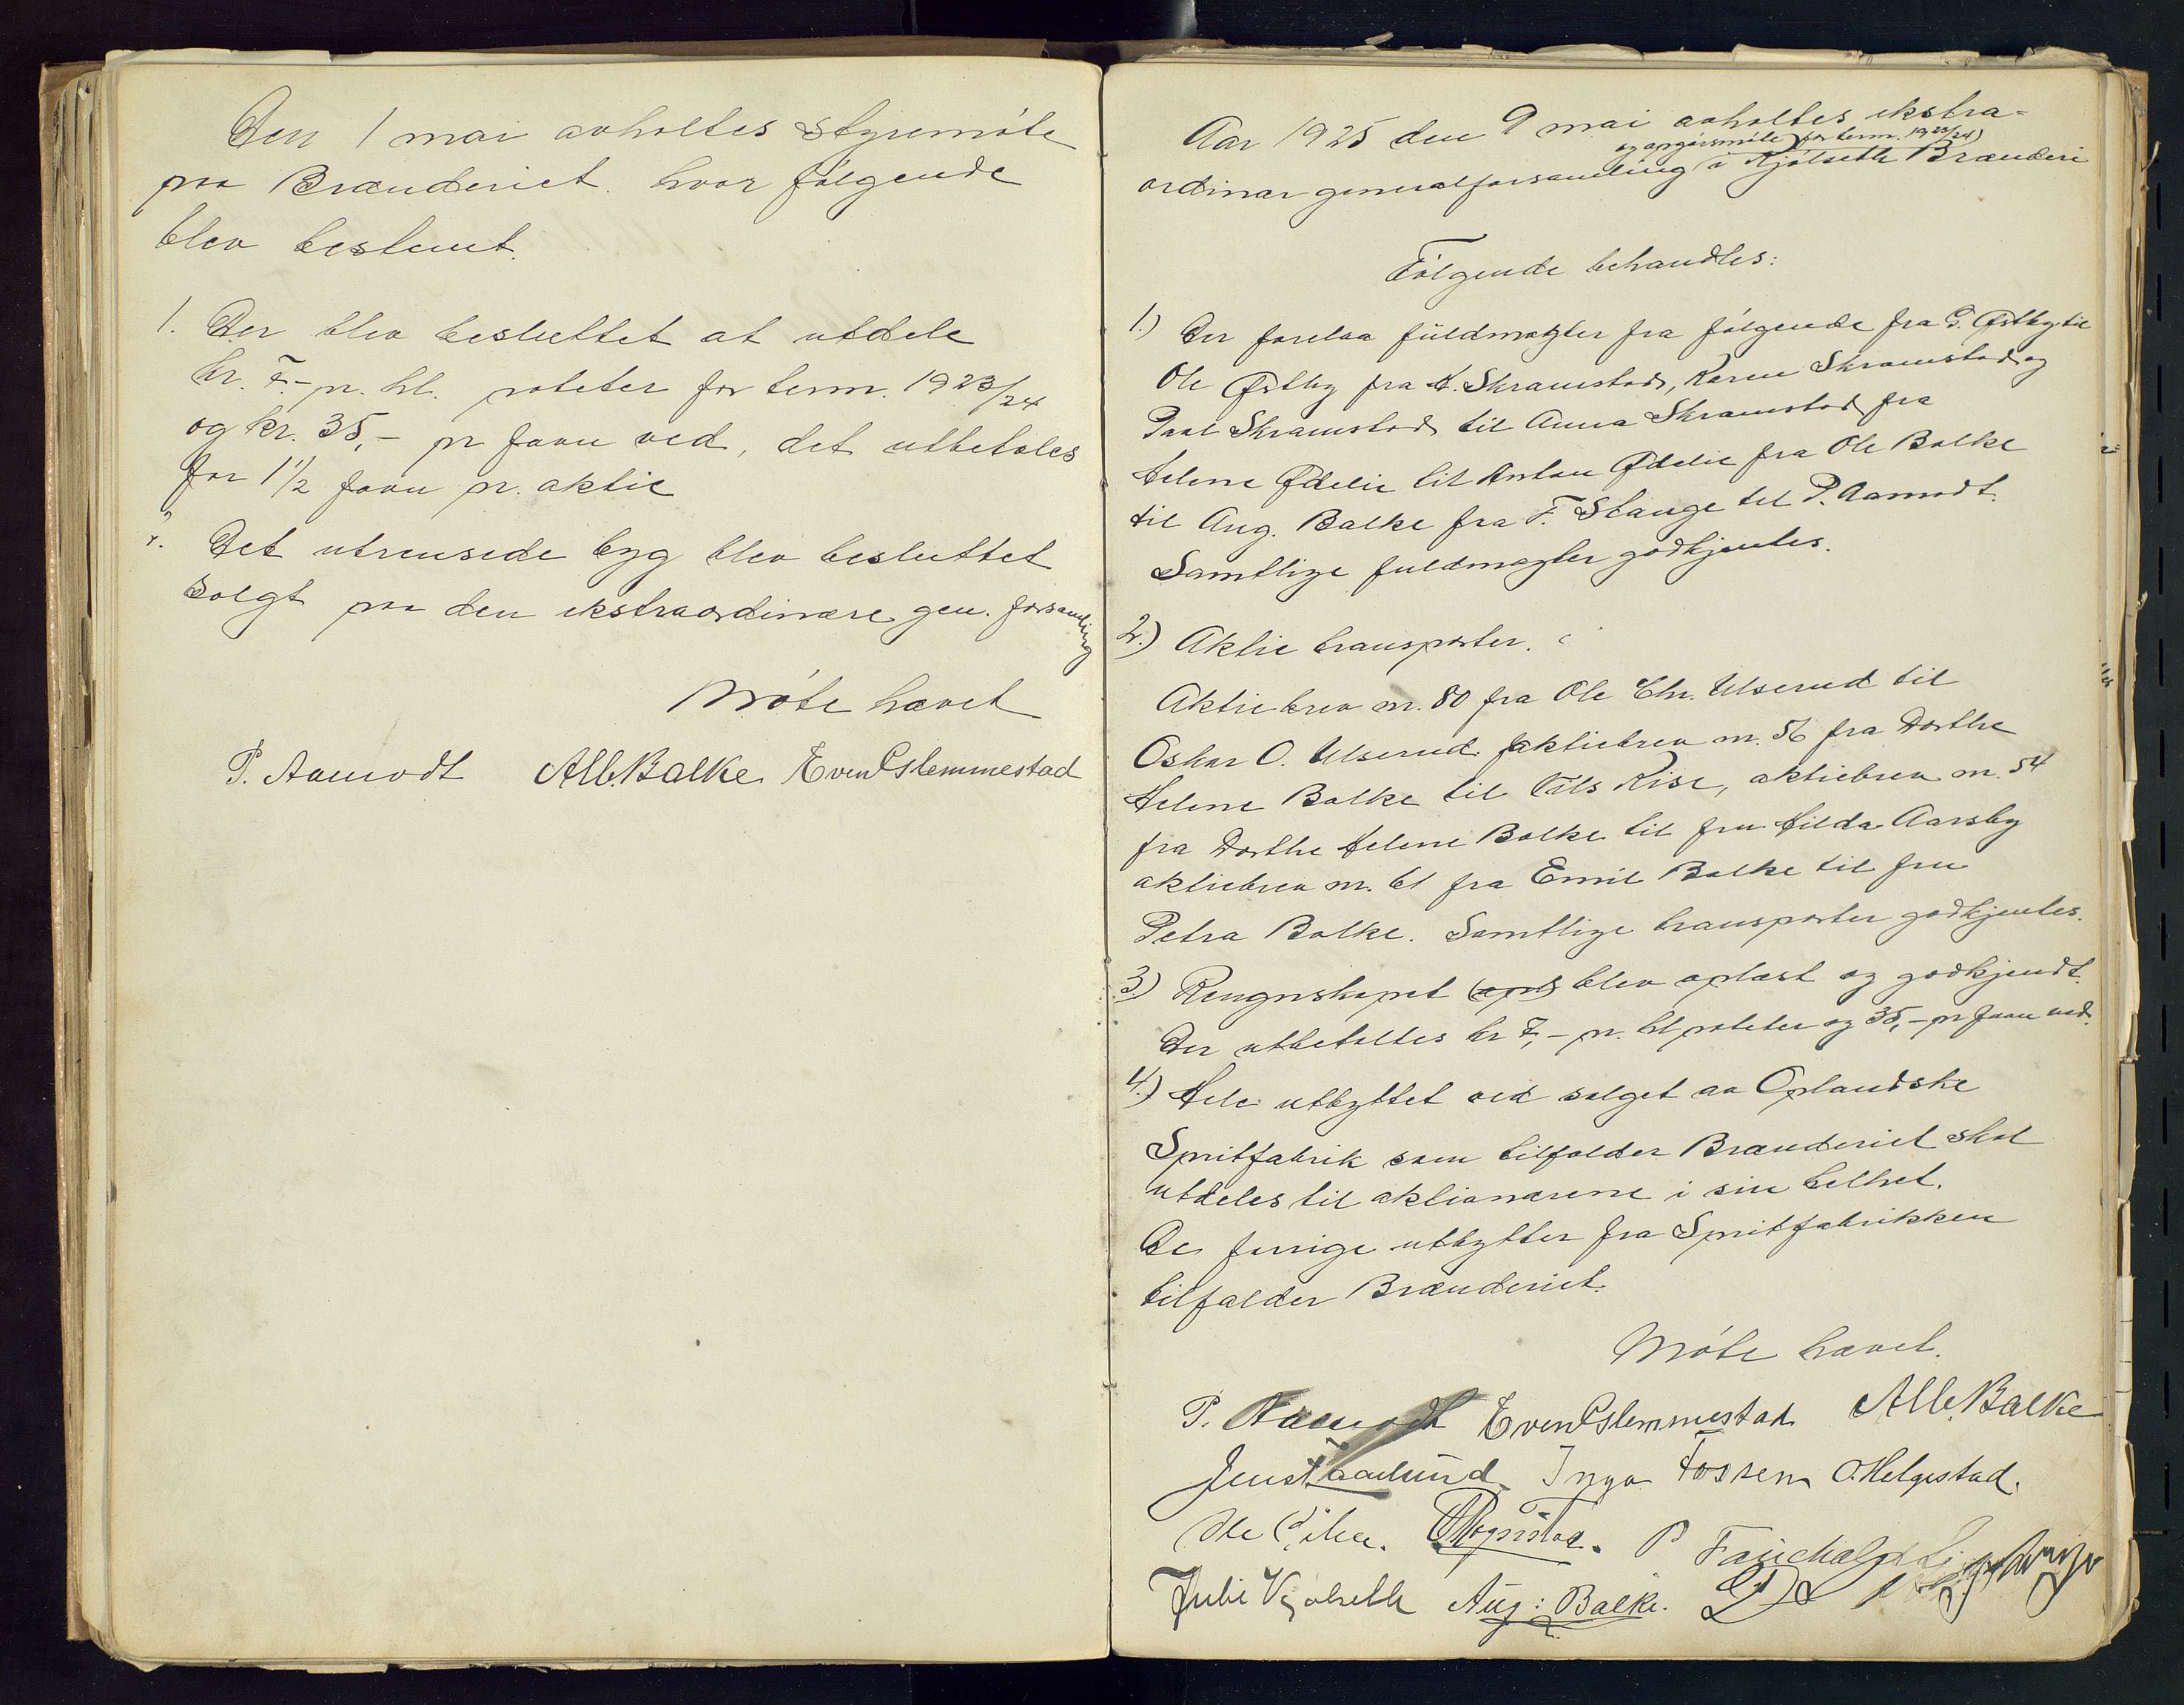 Den 1 mai avholtes styremöte
paa Brænderiet. hvor fölgende
blev bestemt.
1. Der blev besluttet at utdele
kr. 7,- pr. hl. poteter for term. 1923/24
og kr. 35,- pr favn ved, det utbetales
for 1 1/2 favn pr. aktie
2. Det utrensede byg blev besluttet
solgt paa den ekstraordinære gen. forsamling
Möte hævet
P. Aamodt Alb. Balke Even Slemmestad
Aar 1925 den 9 mai avholtes ekstra-
og opgjörsmöte for term. 1923/24)
ordinær generalforsamling i Kjölseth Brænderi
Fölgende behandles:
1.) Der forelaa fuldmagter fra fölgende fra G. Østby til
Ole Østby fra A. Skramstad, Karen Skramstad og
Paul Skramstad til Anna Skramstad fra
Helene Ødelie til Anton Ødelie fra Ole Balke
til Aug. Balke fra F. Stange til P. Aamodt.
Samtlige fuldmagter godkjentes.
2.) Aktie transporter.
Aktiebrev nr. 80 fra Ole Chr. Ulserud til
Oskar O. Ulserud. aktiebrev nr. 56 fra Dorthe
Helene Balke til Nils Rise, aktiebrev nr. 54
fra Dorthe Helene Balke til fru Hilda Aarsby
aktiebrev nr. 61 fra Emil Balke til fru
Petra Balke. Samtlige transporter godkjentes.
3) Rengnskapet (opl) blev oplæst og godkjendt.
Der utbetaltes kr 7,- pr. hl poteter og 35,- pr favn ved.
4.) Hele utbyttet ved salget av Oplandske
Spritfabrik som tilfalder Brænderiet skal
utdeles til aktionærene i sin helhet.
De förrige utbytter fra Spritfabrikken
tilfalder Brænderiet.
Möte hævet.
P. Aamodt Even Slemmestad Alb. Balke
Jens Faarlund Inga Fossen O. Helgestad.
Ole P. Rognstad. P
Julie Kjölseth Aug: Balke.